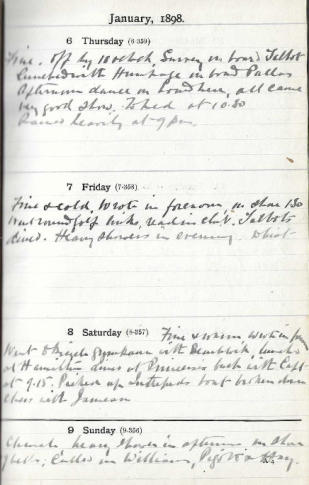 January, 1898.
6 Thursday (6-359)
Fine. Off by 10 o'clock, Survey on board Talbot
Lunched with on board Pallas
Afternoon dance on board here, all came
very good show. To bed at 10.30
Rained heavily at 9 pm.
7 Friday (7-358)
Fine & cold, Wrote in forenoon, on shore 1.30
Went round golf links, read in club. Talbots
dined. Heavy showers in evening. Whist
8 Saturday (8-357) Fine & warm wrote in
Went to Bicycle Gymkhana with lunched
at Hamilton, dined at Princess back with Capt
at 9.15. Packed up boat broken down
Chess with Jameson
9 Sunday (9-356)
Church. heavy shower in afternoon on shore
Called on Williams,